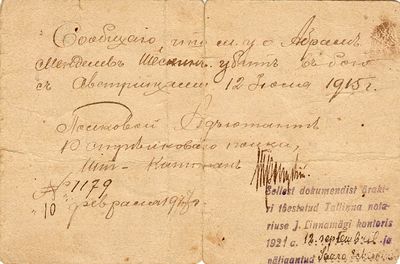 Сообщаю, что м. у. о. Абрамъ
Менделевъ убитъ въ бою
съ Австрийцами 12 Июля 1915 г.
Полковой Адъютантъ
10 стрѣлковаго полка,
Шт.-Капитанъ
№ 1179
"10" февраля 1918 г.
Sellest dokumendist ärakiri
tõestatud Tallinna notariuse
J. Linnamägi kontoris
1921 a. 12. septembril